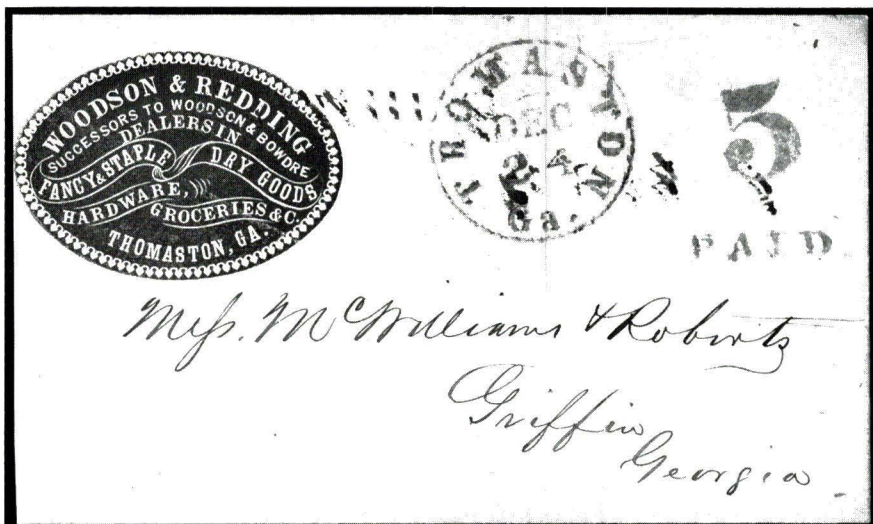 WOODSON & REDDING
SUCCESSORS TO WOODSON & BOWDRE
DEALERS IN
FANCY & STAPLE DRY GOODS
HARDWARE,
GROCERIES &C.
THOMASTON, GA.
THOMASTON
DEC
24
Ga.
5
PAID
Mess. McWilliams & Roberts
Griffin
Georgia